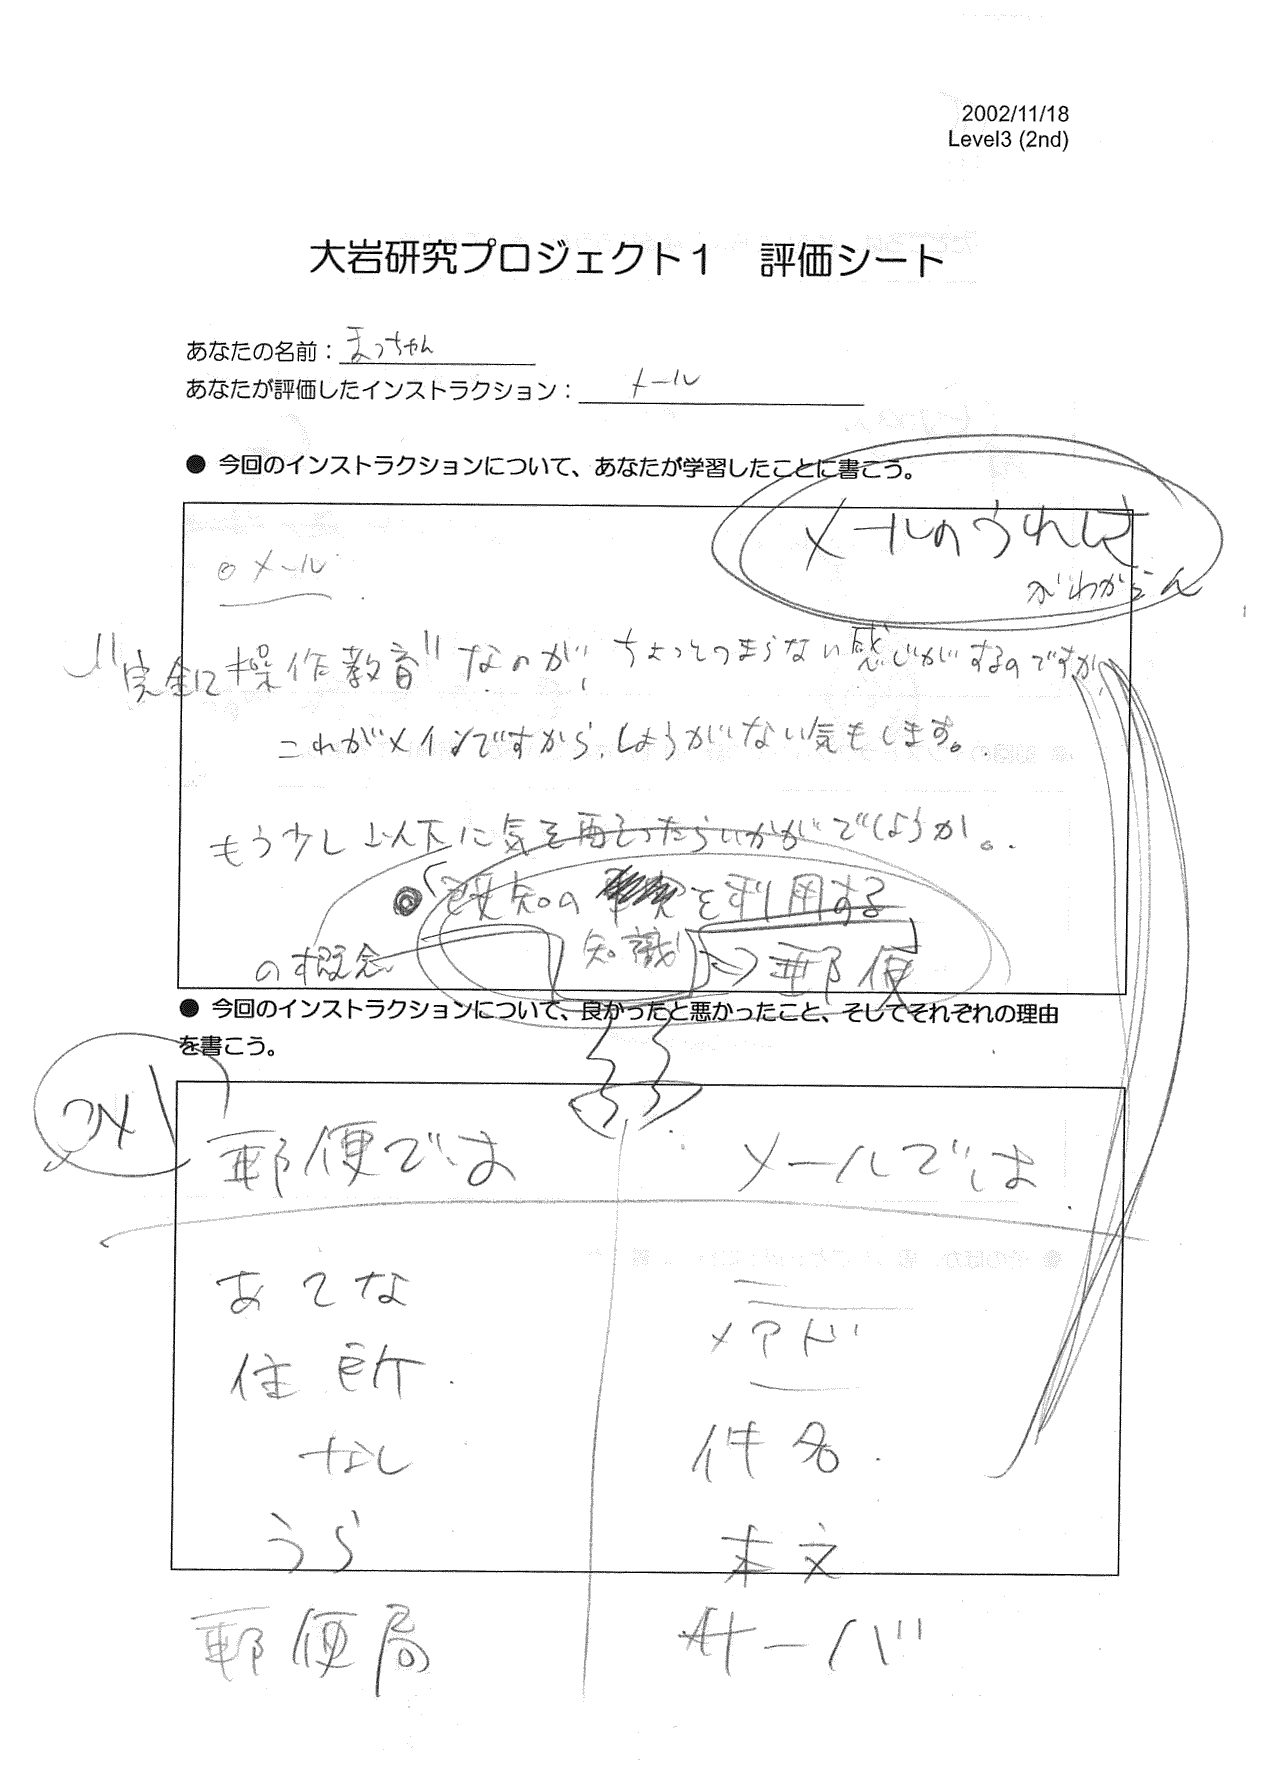 2002/11/18
Level3 (2nd)
大岩研究プロジェクト１　評価シート
あなたの名前：まっちゃん
あなたが評価したインストラクション：メール
● 今回のインストラクションについて、あなたが学習したことに書こう。
メールのうれしさ
がわからん
○メール
"完全に操作教育"なのが、ちょっとつまらない感じがするのですが、
これがメインですから、しょうがない気もします。
もう少し以下に気をつかったらいかがでしょうか。
◎ 既知の を利用する
の概念 知識 → 郵便
● 今回のインストラクションについて、良かったと悪かったこと、そしてそれぞれの理由
を書こう。
郵便では メールでは
あてな
住所 メアド
なし 件名
うら 本文
郵便局 サーバ